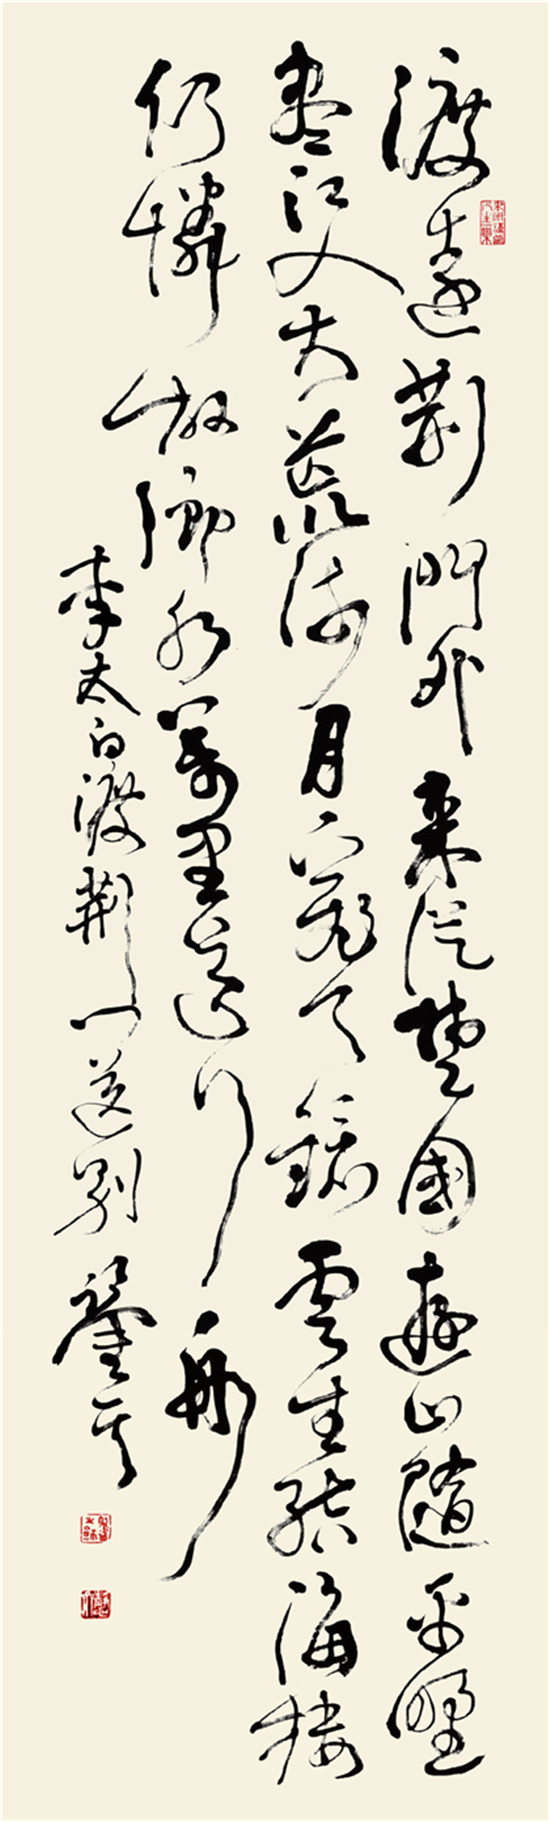 渡遠荊門外来從楚國遊山隨平野
盡江入大荒流月下飛天鏡雲生結海樓
仍憐故鄉水萬里送行舟
李太白渡荊門送别